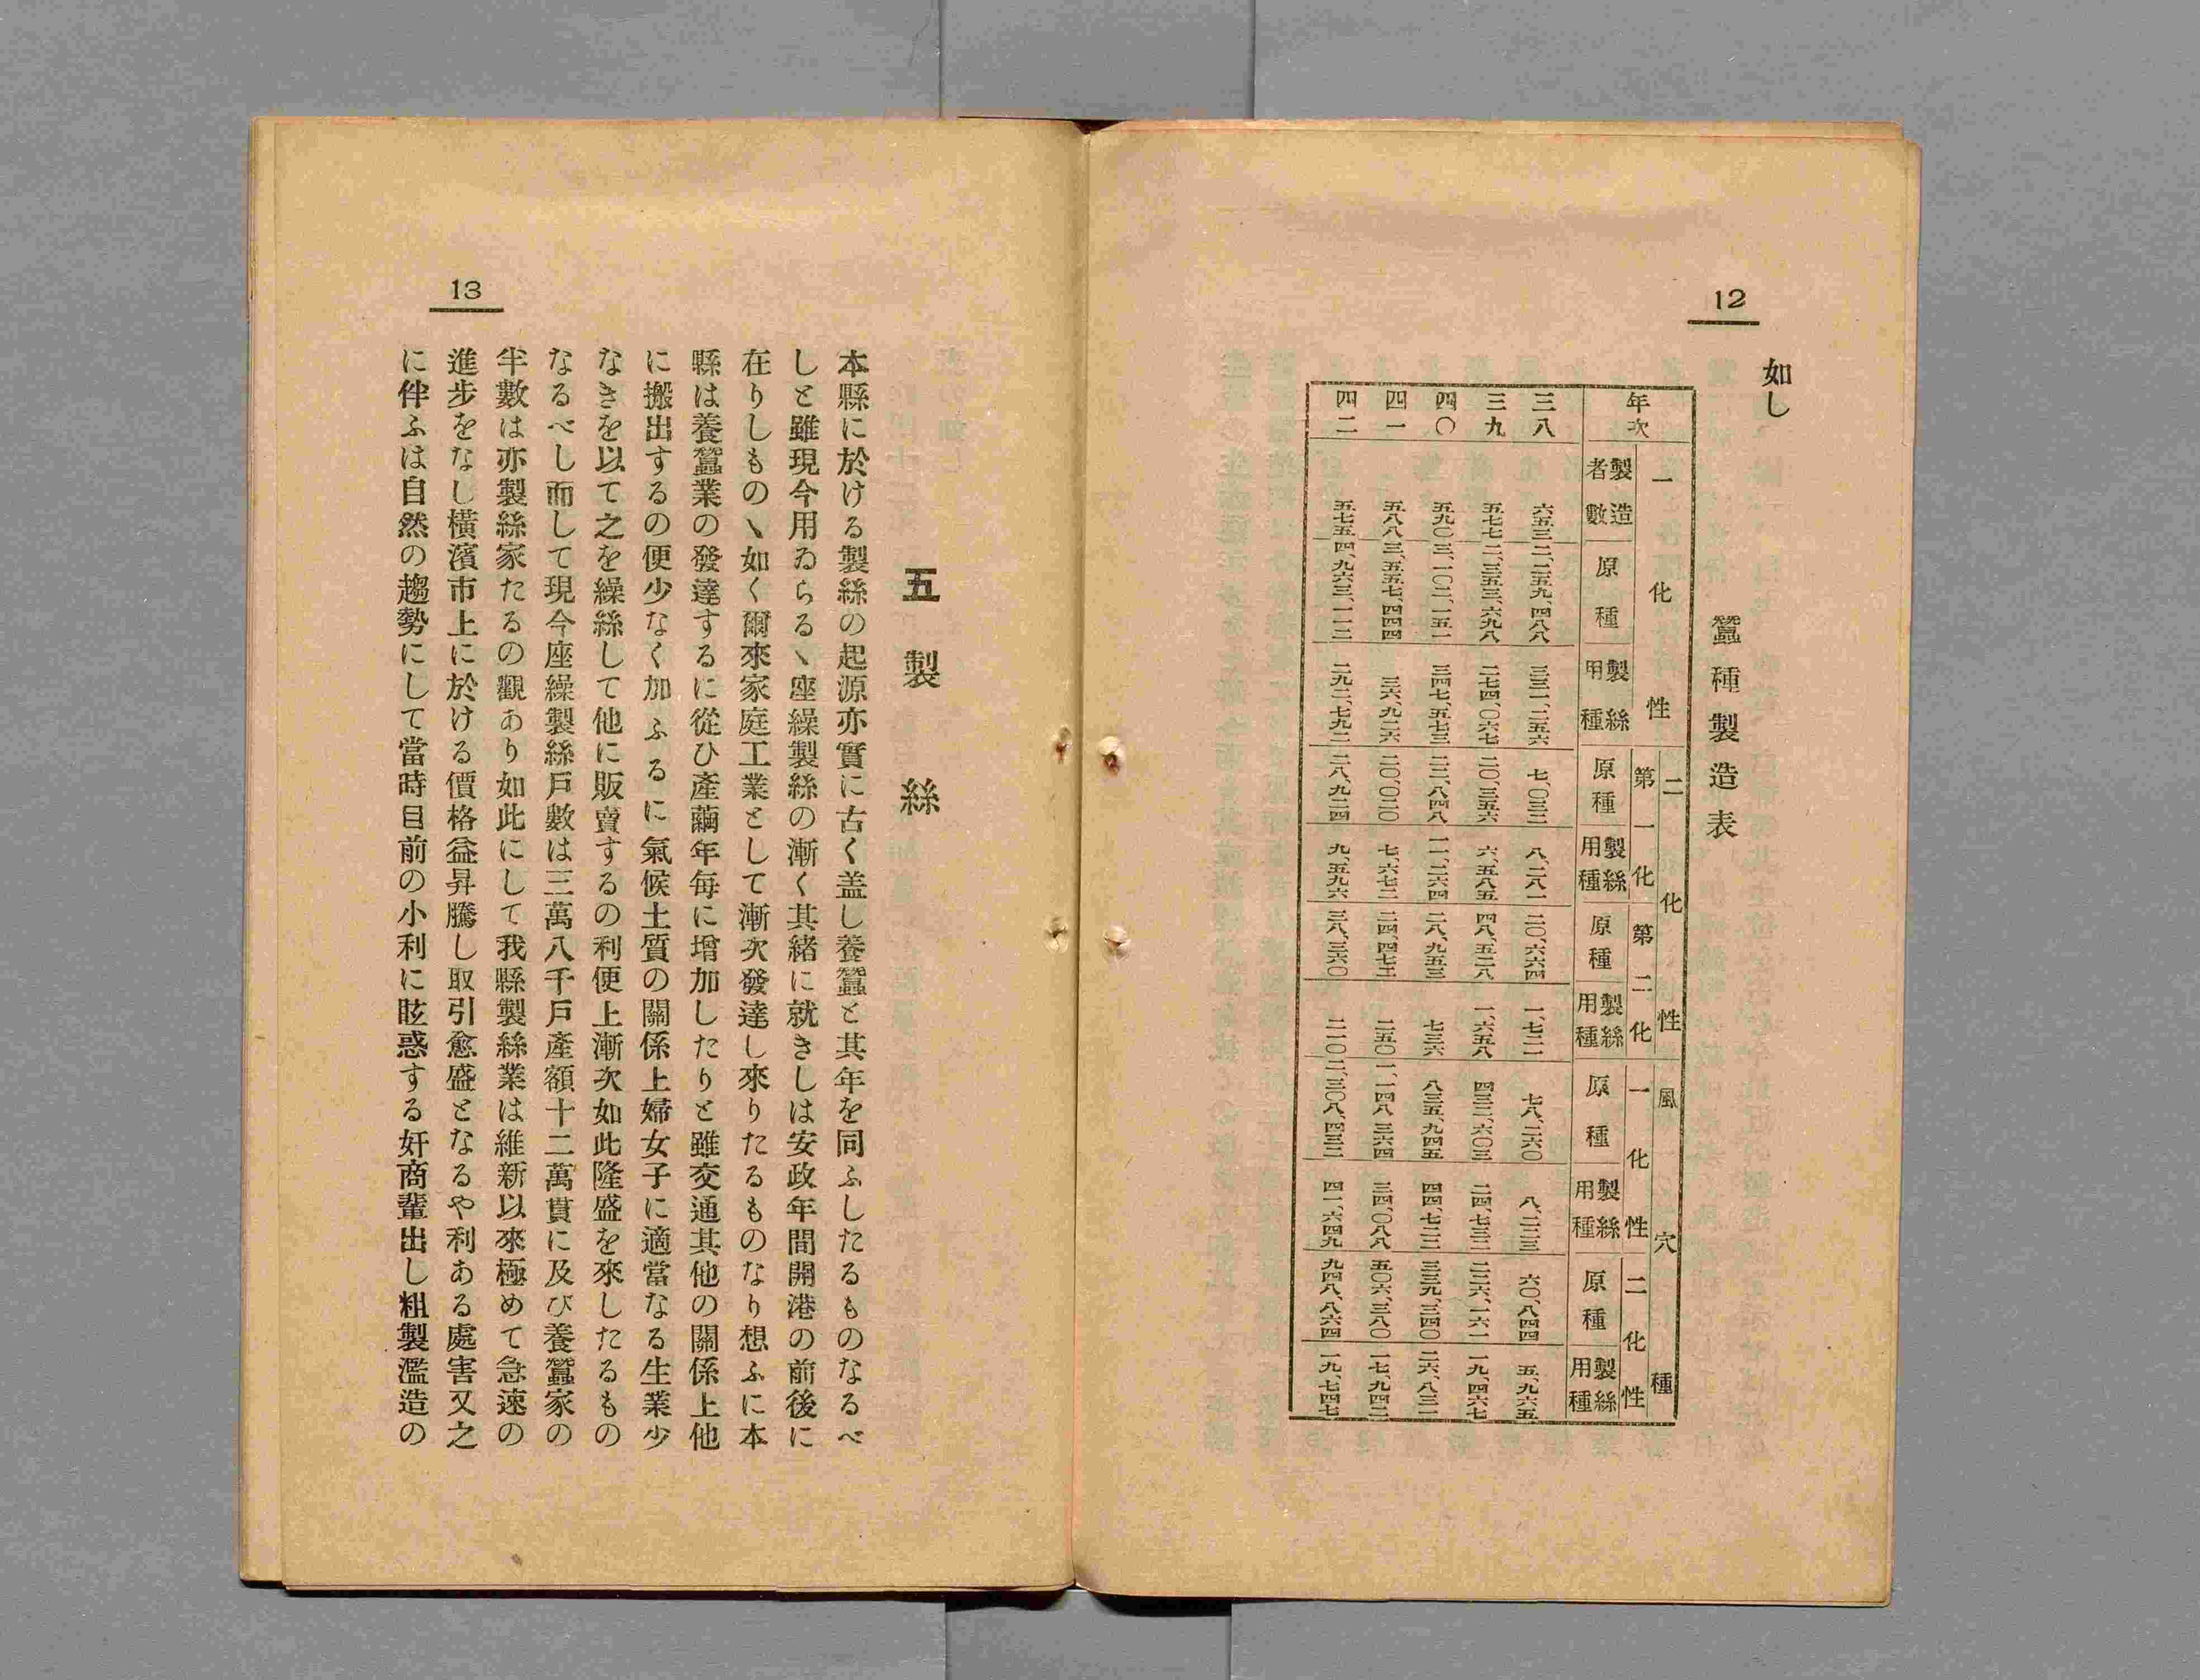 12
如し
蠶種製造表
年次 一化性 二化性 風穴種
第一化 第二化 一化性 二化性
製造者數 原種 製絲用種 原種 製絲用種 原種 製絲用種 原種 製絲用種 原種 製絲用種
三八 六五三 二、二五九、四八八 三三一、二五六 七、〇三三 八、二八一 二〇、六六四 一、七二一 七八、二六〇 八、二二三 六〇、八四四 五、九六五
三九 五七七 二、三五三、六九八 二七四、〇六七 二〇、三五六 六、五八五 四八、五二八 一、六五八 四三二、六〇三 二四、七三二 二二六、一六一 一九、四六七
四〇 五九〇 三、一〇二、一五一 三四七、五七三 二二、八四八 一一、二六四 二八、九五三 七三六 八三五、九四五 四四、七二二 三三九、三四〇 二六、八三一
四一 五八八 三、五五七、四四四 三六、九二六 二〇、〇二〇 七、六七二 二五〇 一、一四八、三六四 三四、〇八八 五〇六、三八〇 一七、九四二
四二 五七五 四、九六三、一一二 二九二、七九二 二八、九二四 九、五九六 三八、三六〇 二一〇 二、三〇八、四三二 四一、六四九 九四八、八六四 一九、七四七
13
五 製 絲
本縣に於ける製絲の起源亦實に古く盖し養蠶と其年を同ふしたるものなるべ
しと雖現今用ゐらるヽ座繰製絲の漸く其緒に就きしは安政年間開港の前後に
在りしものヽ如く爾來家庭工業として漸次發達し來りたるものなり想ふに本
縣は養蠶業の發達するに從ひ產繭年每に增加したりと雖交通其他の關係上他
に搬出するの便少なく加ふるに氣候土質の關係上婦女子に適當なる生業少
なきを以て之を繰絲して他に販賣するの利便上漸次如此隆盛を來したるもの
なるべし而して現今座繰製絲戶數は三萬八千戶產額十二萬貫に及び養蠶家の
半數は亦製絲家たるの觀あり如此にして我縣製絲業は維新以來極めて急速の
進步をなし橫濱市上に於ける價格益昇騰し取引愈盛となるや利ある處害又之
に伴ふは自然の趨勢にして當時目前の小利に眩惑する奸商輩出し粗製濫造の